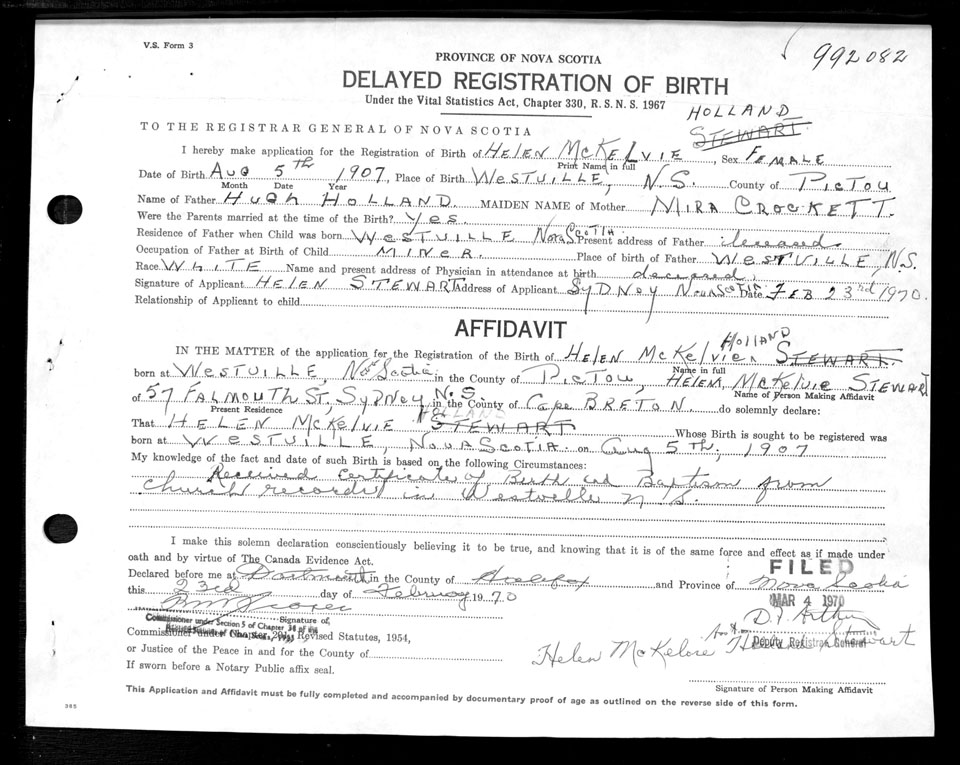 V.S. Form 3
992082
PROVINCE OF NOVA SCOTIA
DELAYED REGISTRATION OF BIRTH
Under the Vital Statistics Act, Chapter 330, R.S.N.S. 1967
HOLLAND
TO THE REGISTRAR GENERAL OF NOVA SCOTIA STEWART
I hereby make application for the Registration of Birth of HELEN MCKELVIE, Sex FEMALE
Print Name in full
Date of Birth AUG 5TH 1907, Place of Birth WESTVILLE, N.S. County of PICTOU
Month Date Year
Name of Father HUGH HOLLAND. MAIDEN NAME of Mother MIRA CROCKETT.
Were the Parents married at the time of the Birth? YES.
Residence of Father when Child was born WESTVILLE NOVA SCOTIA Present address of Father deceased
Occupation of Father at Birth of Child MINER. Place of birth of Father WESTVILLE, N.S.
Race WHITE Name and present address of Physician in attendance at birth deceased.
Signature of Applicant HELEN STEWART Address of Applicant SYDNEY NOVA SCOTIA Date FEB 23rd 1970.
Relationship of Applicant to child
AFFIDAVIT
HOLLAND
IN THE MATTER of the application for the Registration of the Birth of HELEN MCKELVIE STEWART.
Name in full
born at WESTVILLE, Nova Scotia in the County of PICTOU, HELEN MCKELVIE STEWART
Name of Person Making Affidavit
of 57 FALMOUTH ST, SYDNEY N.S. in the County of CAPE BRETON. do solemnly declare:
Present Residence
HOLLAND
That HELEN MCKELVIE STEWART Whose Birth is sought to be registered was
born at WESTVILLE, NOVA SCOTIA on Aug 5TH, 1907
My knowledge of the fact and date of such Birth is based on the following Circumstances:
Received Certificate of Birth and Baptism from
church records in Westville N S.
I make this solemn declaration conscientiously believing it to be true, and knowing that it is of the same force and effect as if made under
oath and by virtue of The Canada Evidence Act.
FILED
Declared before me at Dartmouth in the County of Halifax and Province of Nova Scotia
this 23rd day of February 1970
MAR 4 1970
Commissioner under Section 5 of Chapter
Signature of,
Commissioner under Chapter Revised Statutes, 1954,
Deputy Registrar General
or Justice of the Peace in and for the County of
Helen McKelvie Holland Stewart
If sworn before a Notary Public affix seal.
Signature of Person Making Affidavit
This Application and Affidavit must be fully completed and accompanied by documentary proof of age as outlined on the reverse side of this form.
385